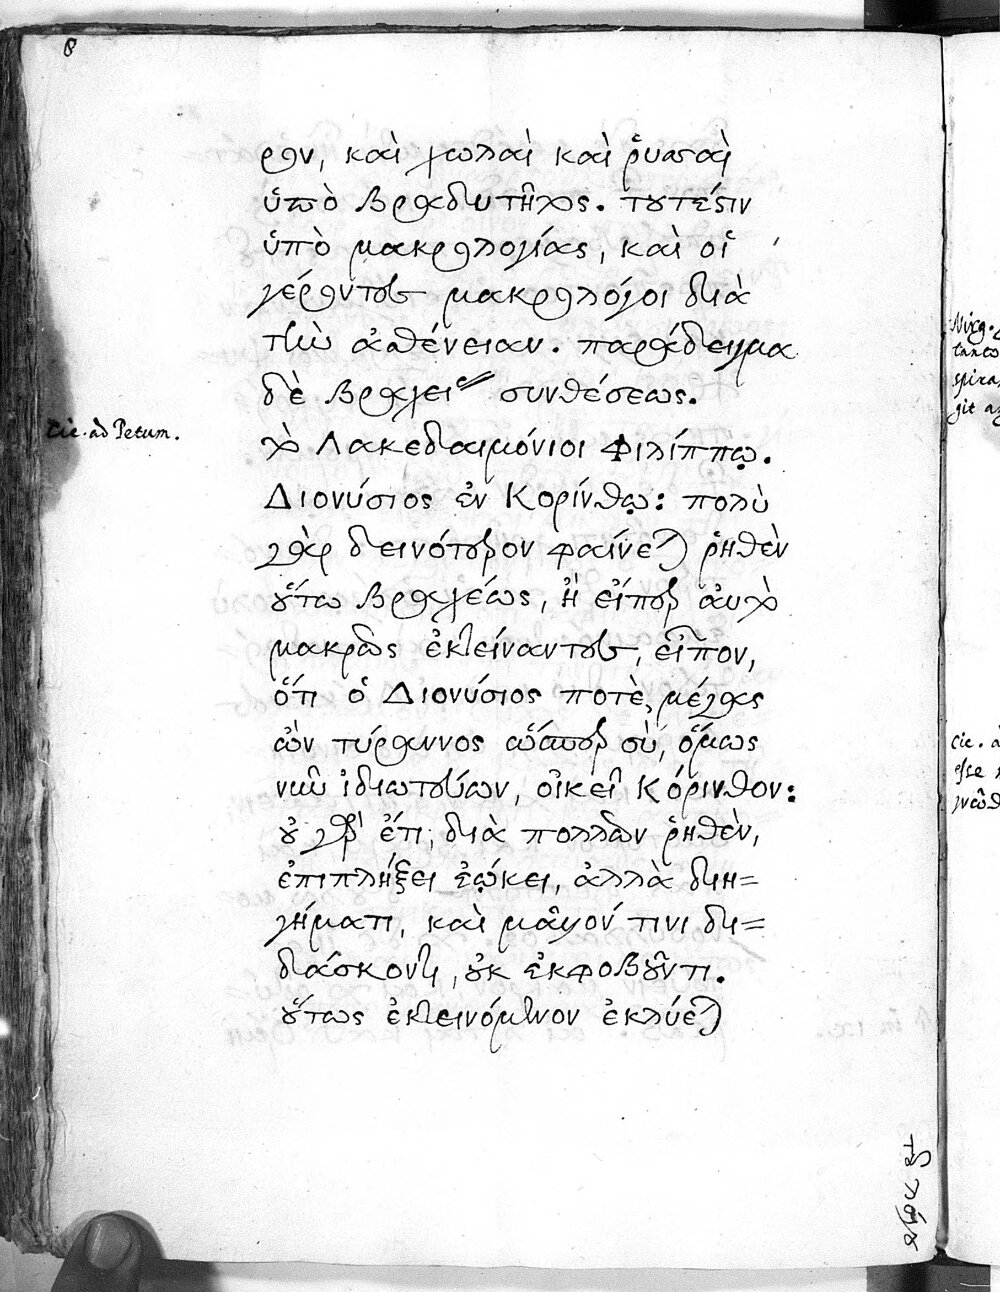 8
ρον, καὶ χωλαὶ καὶ ῥυσαὶ
ὑπὸ βραδυτῆτος. τουτέστιν
ὑπὸ μακρολογίας, καὶ οἱ
γέροντες μακρολόγοι διὰ
τὴν ἀσθένειαν. παράδειγμα
δὲ βραχείας συνθέσεως.
Cic. ad Petum.
τὸ Λακεδαιμόνιοι Φιλίππῳ.
Διονύσιος ἐν Κορίνθῳ: πολὺ
γὰρ δεινότερον φαίνεται ῥηθὲν
οὕτω βραχέως, ἢ εἴπερ αὐτὸ
μακρῶς ἐκτείναντες, εἶπον,
ὅτι ὁ Διονύσιος ποτὲ, μέγας
ὢν τύραννος ὥσπερ σὺ, ὅμως
νῦν ἰδιωτεύων, οἰκεῖ Κόρινθον:
οὐ γὰρ ἔτι, διὰ πολλῶν ῥηθὲν,
ἐπιπλήξει ἐῴκει, ἀλλὰ διη=
γήματι, καὶ μᾶλλόν τινι δι=
διάσκοντι, οὐκ ἐκφοβοῦντι.
οὕτως ἐκτεινόμενον ἐκλύεται
Cic. a